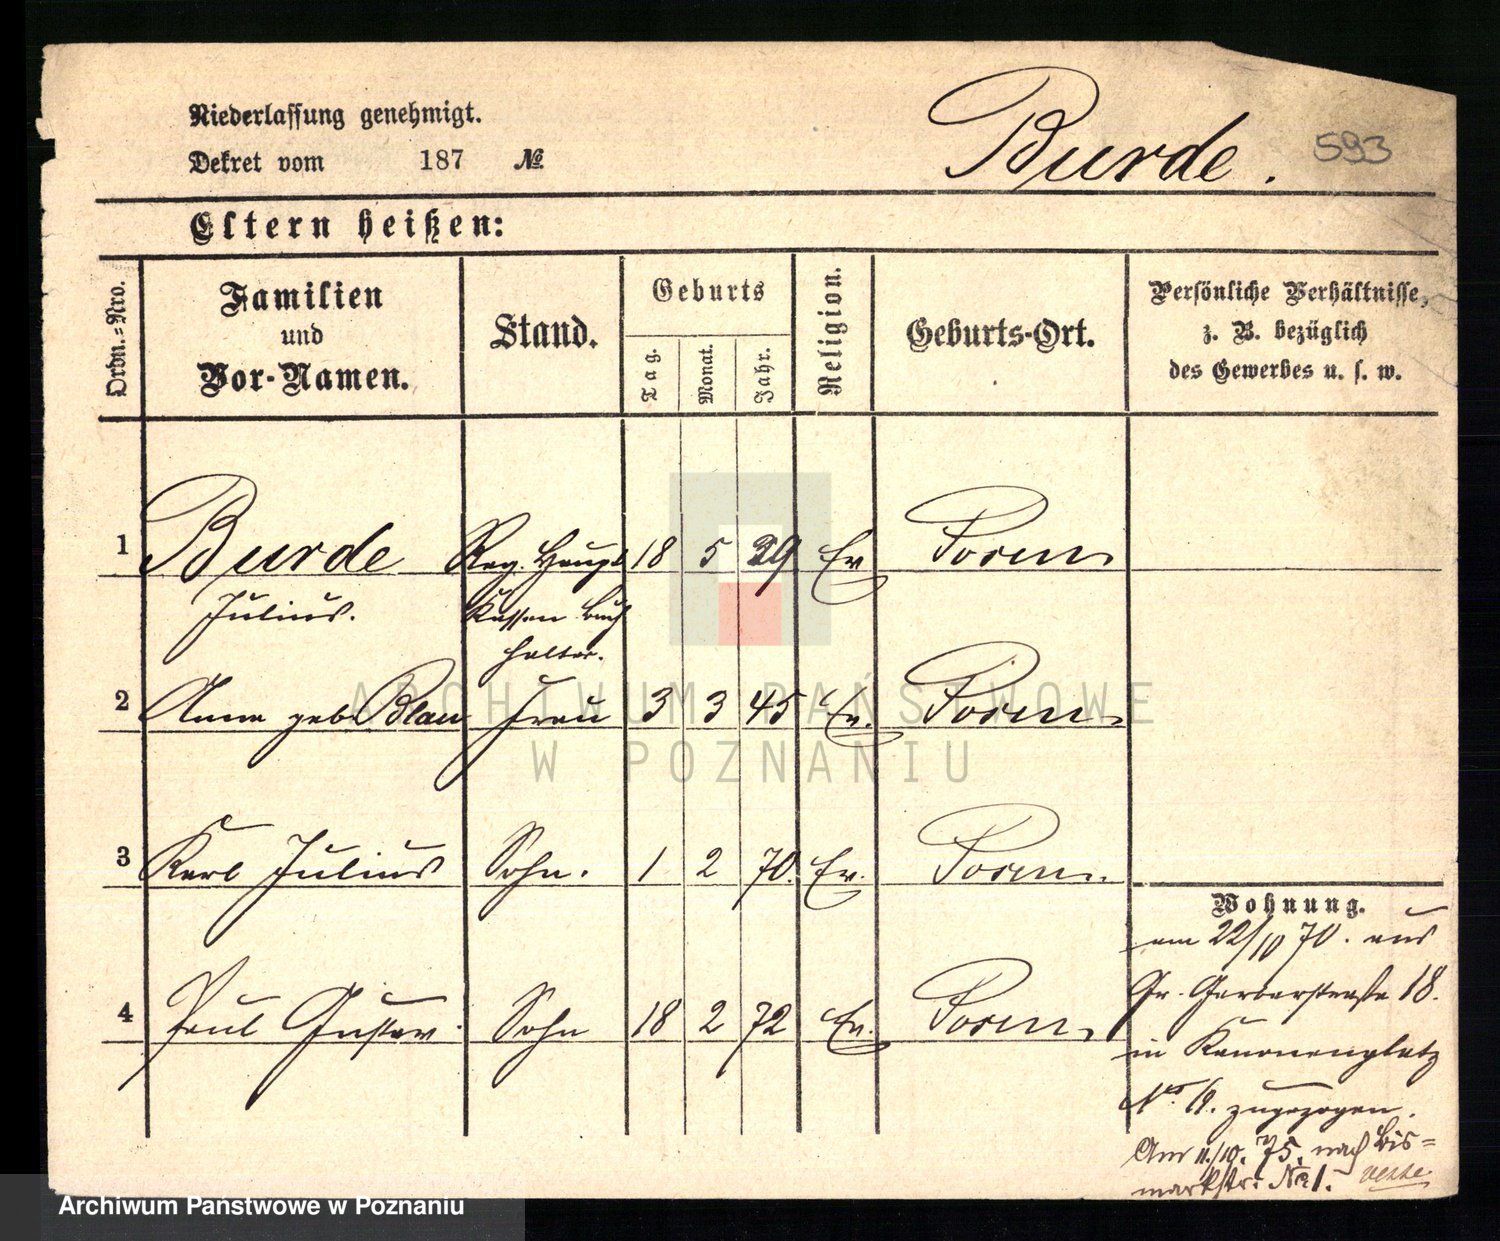 Niederlassung genehmigt.
Dekret vom 187 №
Burde.
593
Eltern heißen:
Ordn.-Nro.
Familien
und
Vor-Namen.
Stand.
Geburts
Tag.
Monat.
Jahr.
Religion.
Geburts-Ort.
Persönliche Verhältnisse,
z. B. bezüglich
des Gewerbes u. s. w.
1 Burde Reg. Haupt 18 5 39 Ev Posen
Julius. Kassen Buch
halter.
2 Anna geb. Blau Frau 3 3 45 Ev. Posen
3 Karl Julius Sohn. 1 2 70. Ev. Posen
4 Paul Gustav. Sohn 18 2 72 Ev. Posen
Wohnung.
am 22/10 70. aus
Gr. Gerberstraße 18.
in Kanonenplatz
No. zugezogen.
Am 11./10. 75. nach Bis-
markstr. No 1.
ARCHIWUM PAŃSTWOWE
W POZNANIU
Archiwum Państwowe w Poznaniu